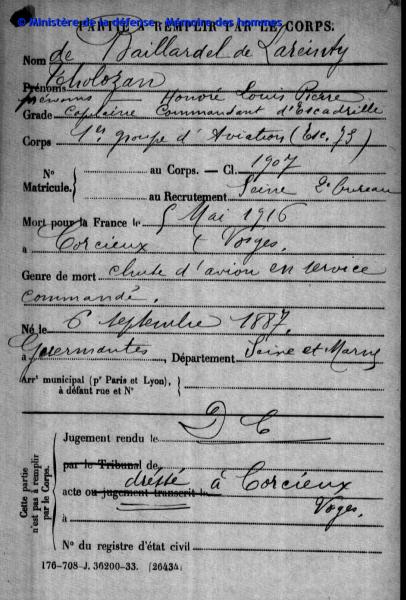 © Ministère de la défense - Mémoire des hommes
PARTIE À REMPLIR PAR LE CORPS.
Nom de Baillardel de Lareinty
Tholozan
Prénoms
prénoms — Honoré Louis Pierre
Grade Capitaine Commandant d'Escadrille
Corps 1er groupe d'Aviation (Esc. 75)
N° Matricule. { au Corps. — Cl. 1907
au Recrutement Seine 2e bureau
Mort pour la France le 5 Mai 1916
à Corcieux (Vosges.
Genre de mort chute d'avion en service
commandé.
Né le 6 septembre 1887.
à Guermantes, Département Seine et Marne
Arrt municipal (pr Paris et Lyon), à défaut rue et N° {
Cette partie n'est pas à remplir par le Corps.
Jugement rendu le D C
par le Tribunal de
acte ou jugement transcrit le dressé à Corcieux
à Vosges.
N° du registre d'état civil
176-708-J. 36200-33. (26434)